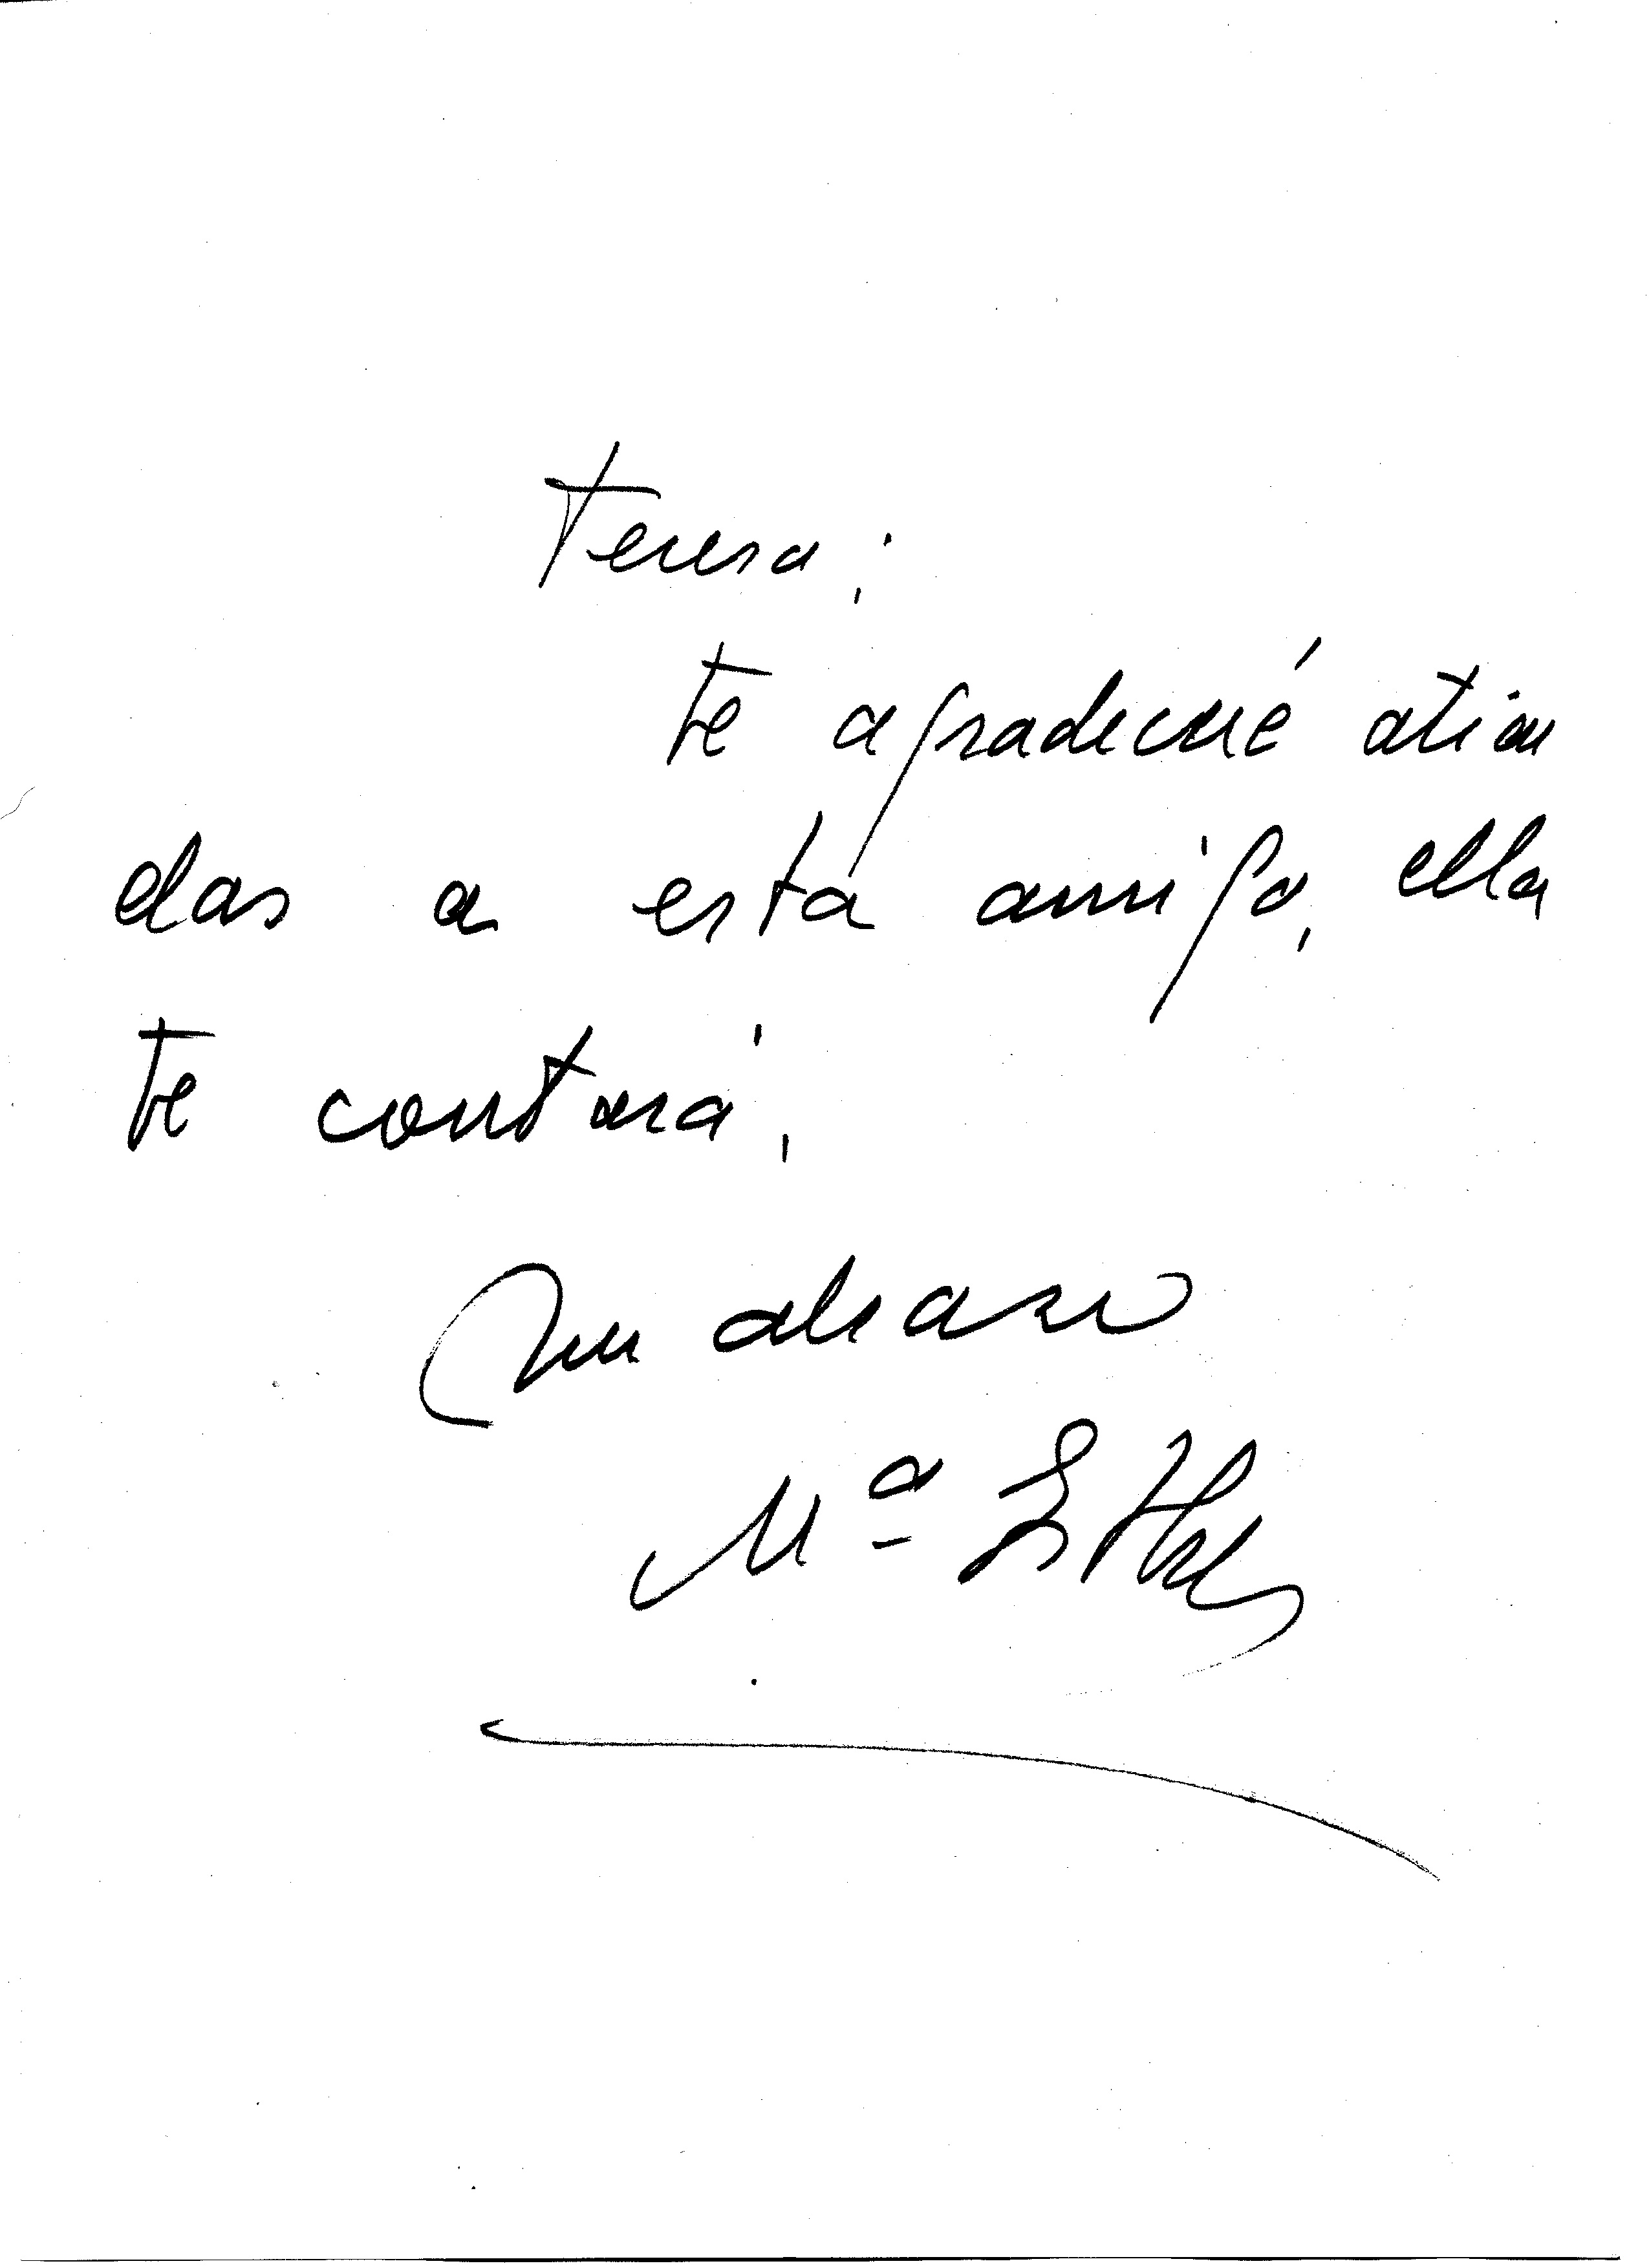 Teresa:
te agradeceré atien
das a esta amiga, ella
te contará.
Un abrazo
Mª Esther